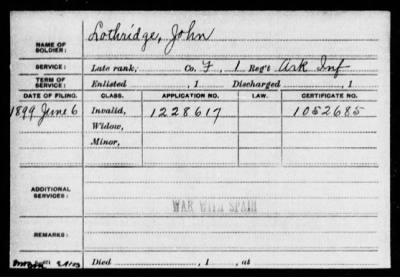 Lothridge, John
NAME OF
SOLDIER:
SERVICE: Late rank, Co. F, 1 Reg't Ark Inf
TERM OF
SERVICE: Enlisted , 1 Discharged , 1
DATE OF FILING. CLASS. APPLICATION NO. LAW. CERTIFICATE NO.
1899 June 6 Invalid, 1228617 1052685
Widow,
Minor,
ADDITIONAL
SERVICES:
WAR WITH SPAIN
REMARKS:
Died , 1 , at